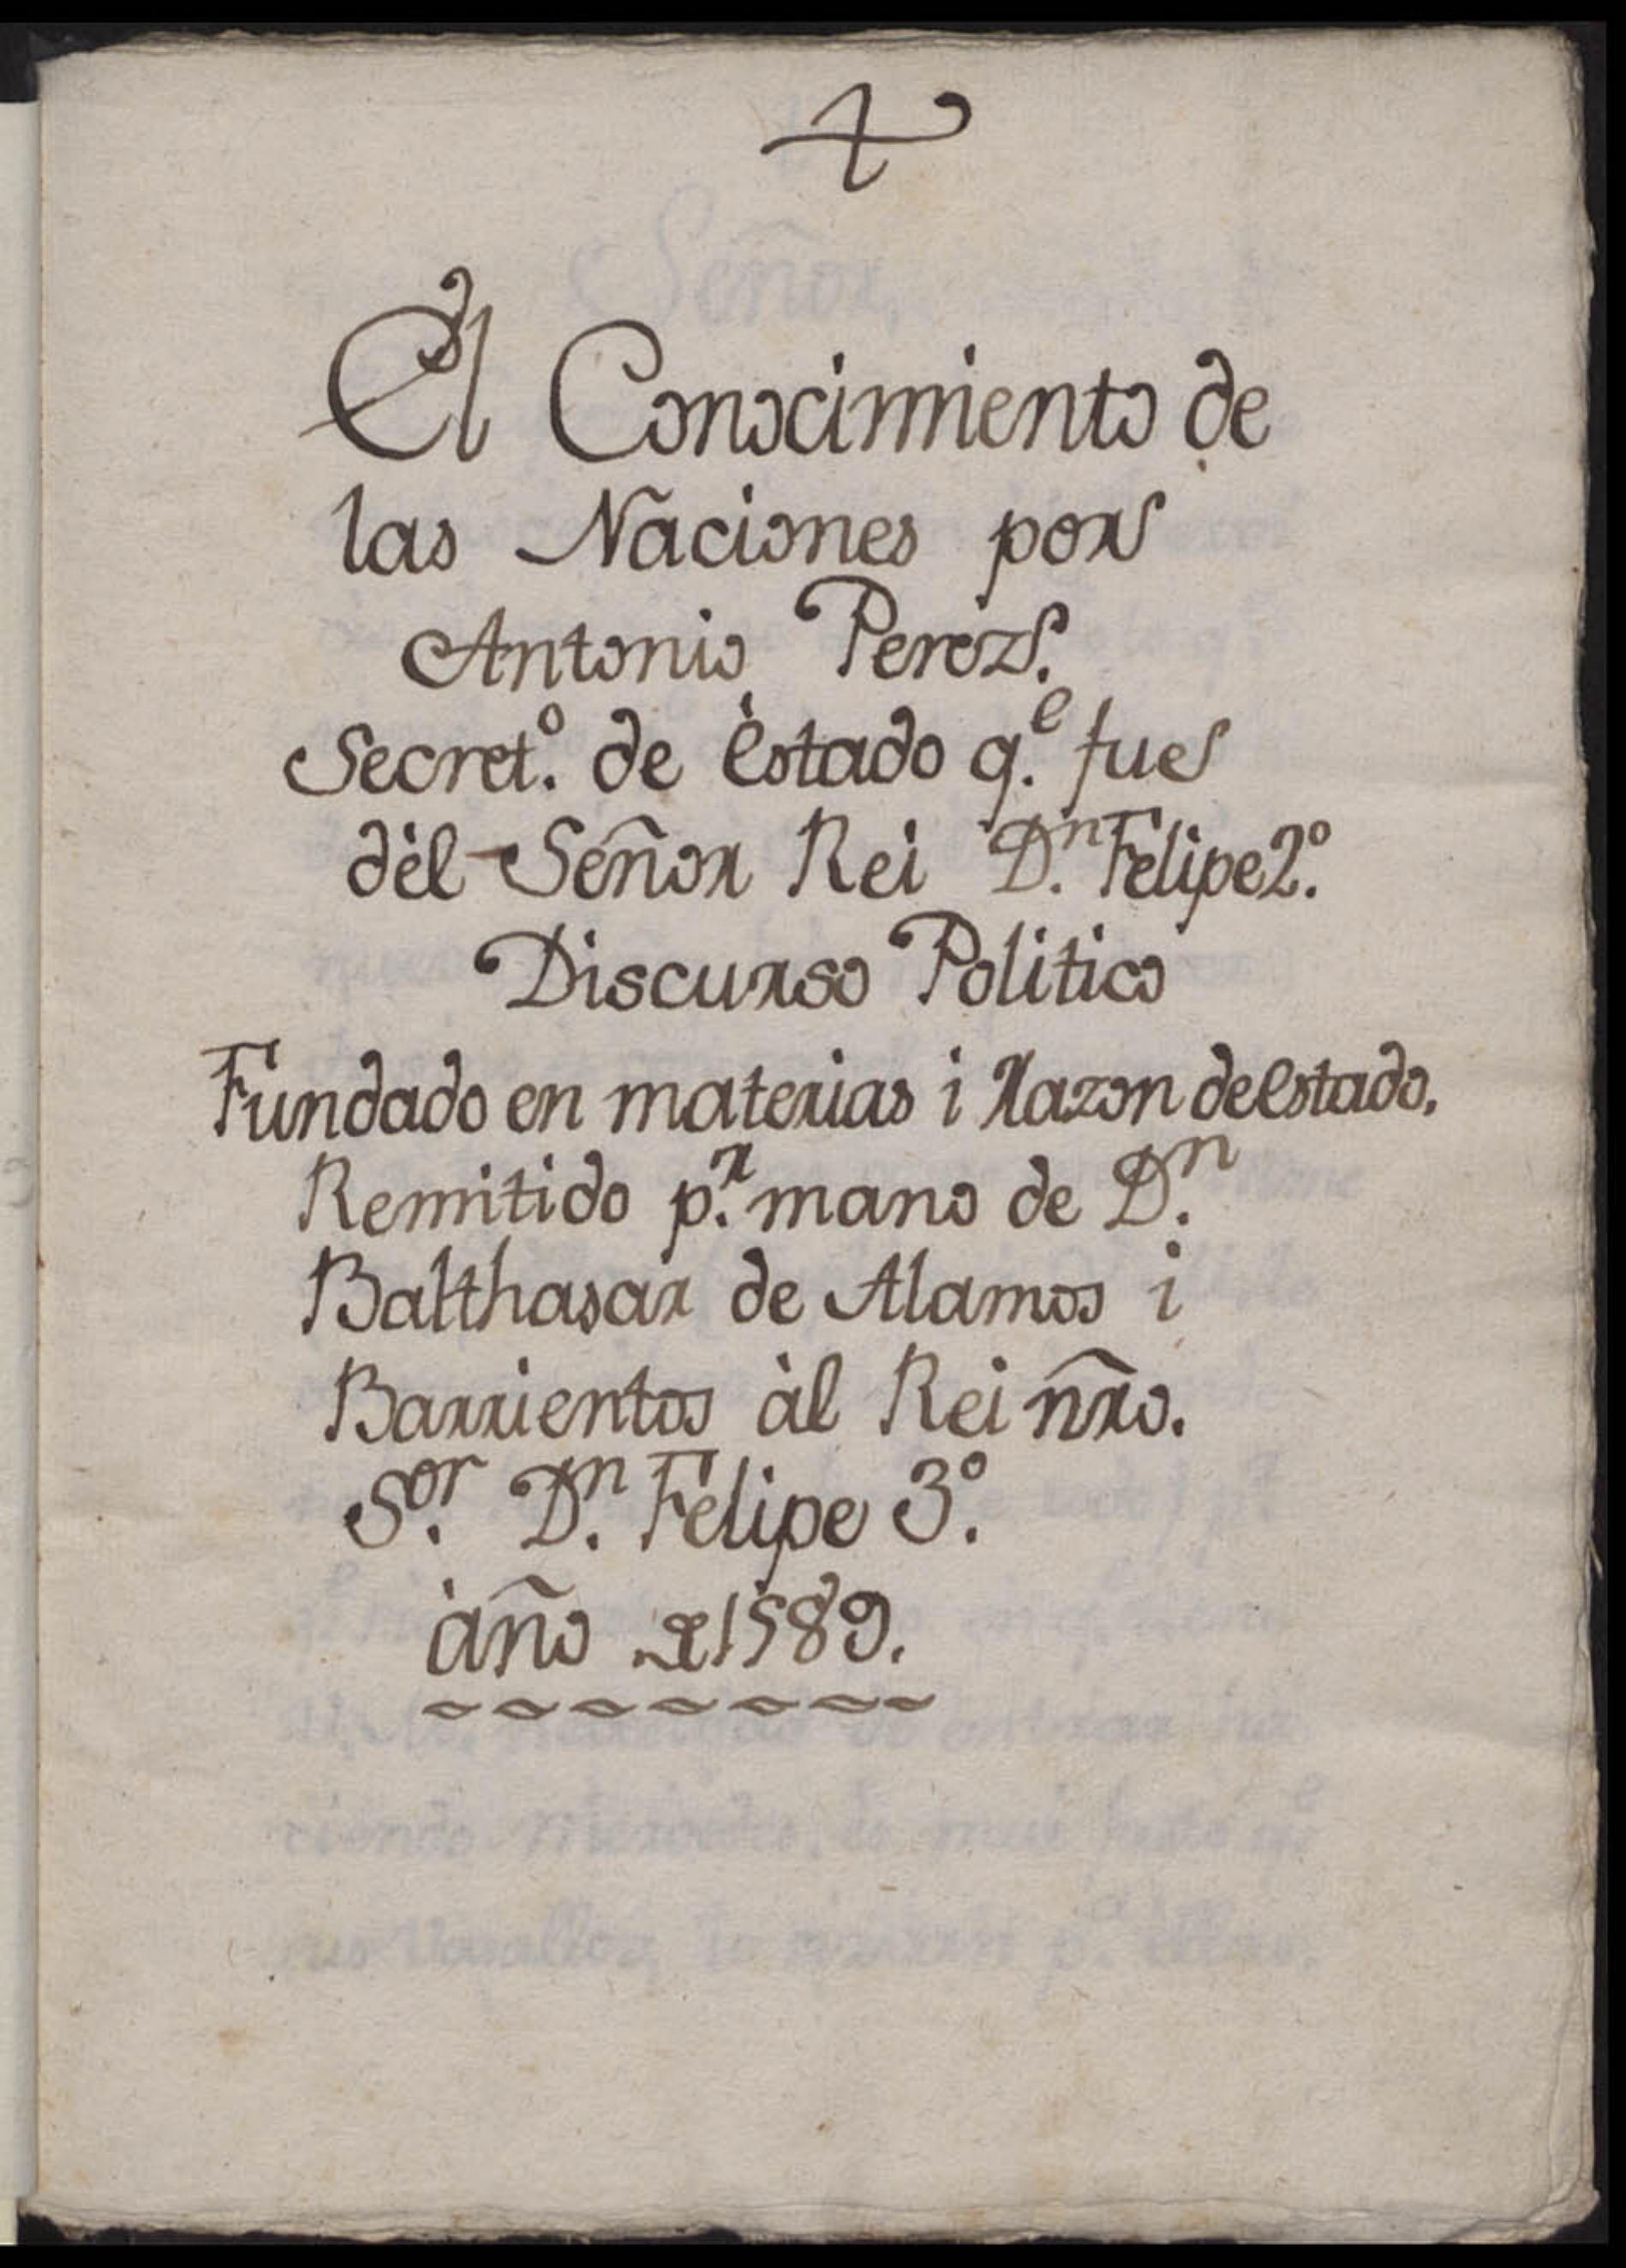 El Conocimiento de
las Naciones por
Antonio Perez.
Secret.º de èstado q.e fue
dèl Señor Rei D.n Felipe 2.º
Discurso Politico
Fundado en materias i razon de estado.
Remitido p.r mano de D.n
Balthasar de Alamos i
Barrientos àl Rei ñro.
S.or D.n Felipe 3.º
àño de 1589.